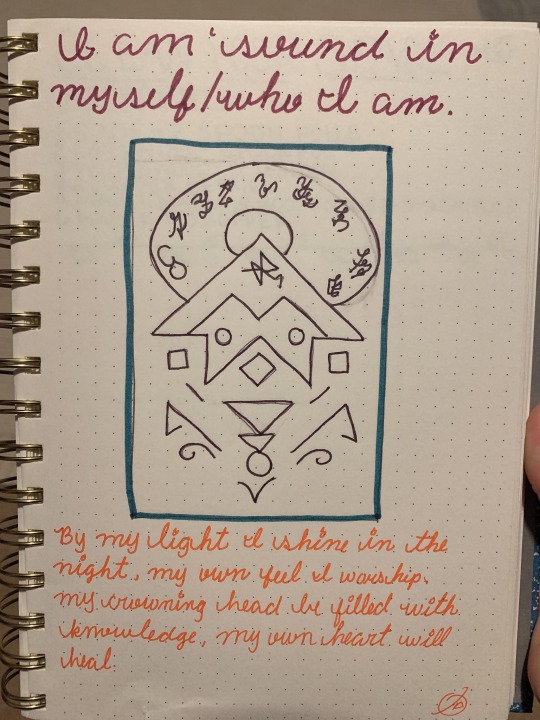 I am sound in
myself/who I am.
By my light I shine in the
night, my own feel I worship.
my crowning head be filled with
knowledge, my own heart will
heal.